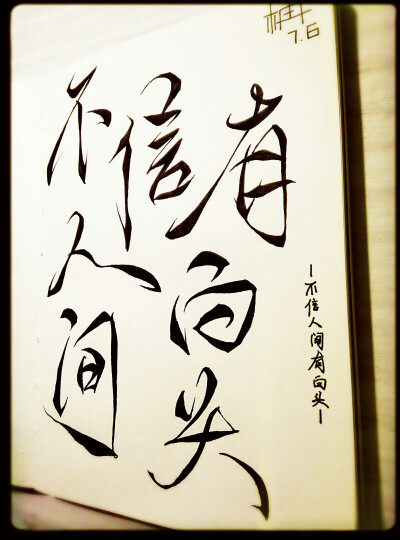 不信
人间
有
白头
—不信人间有白头—
7.6